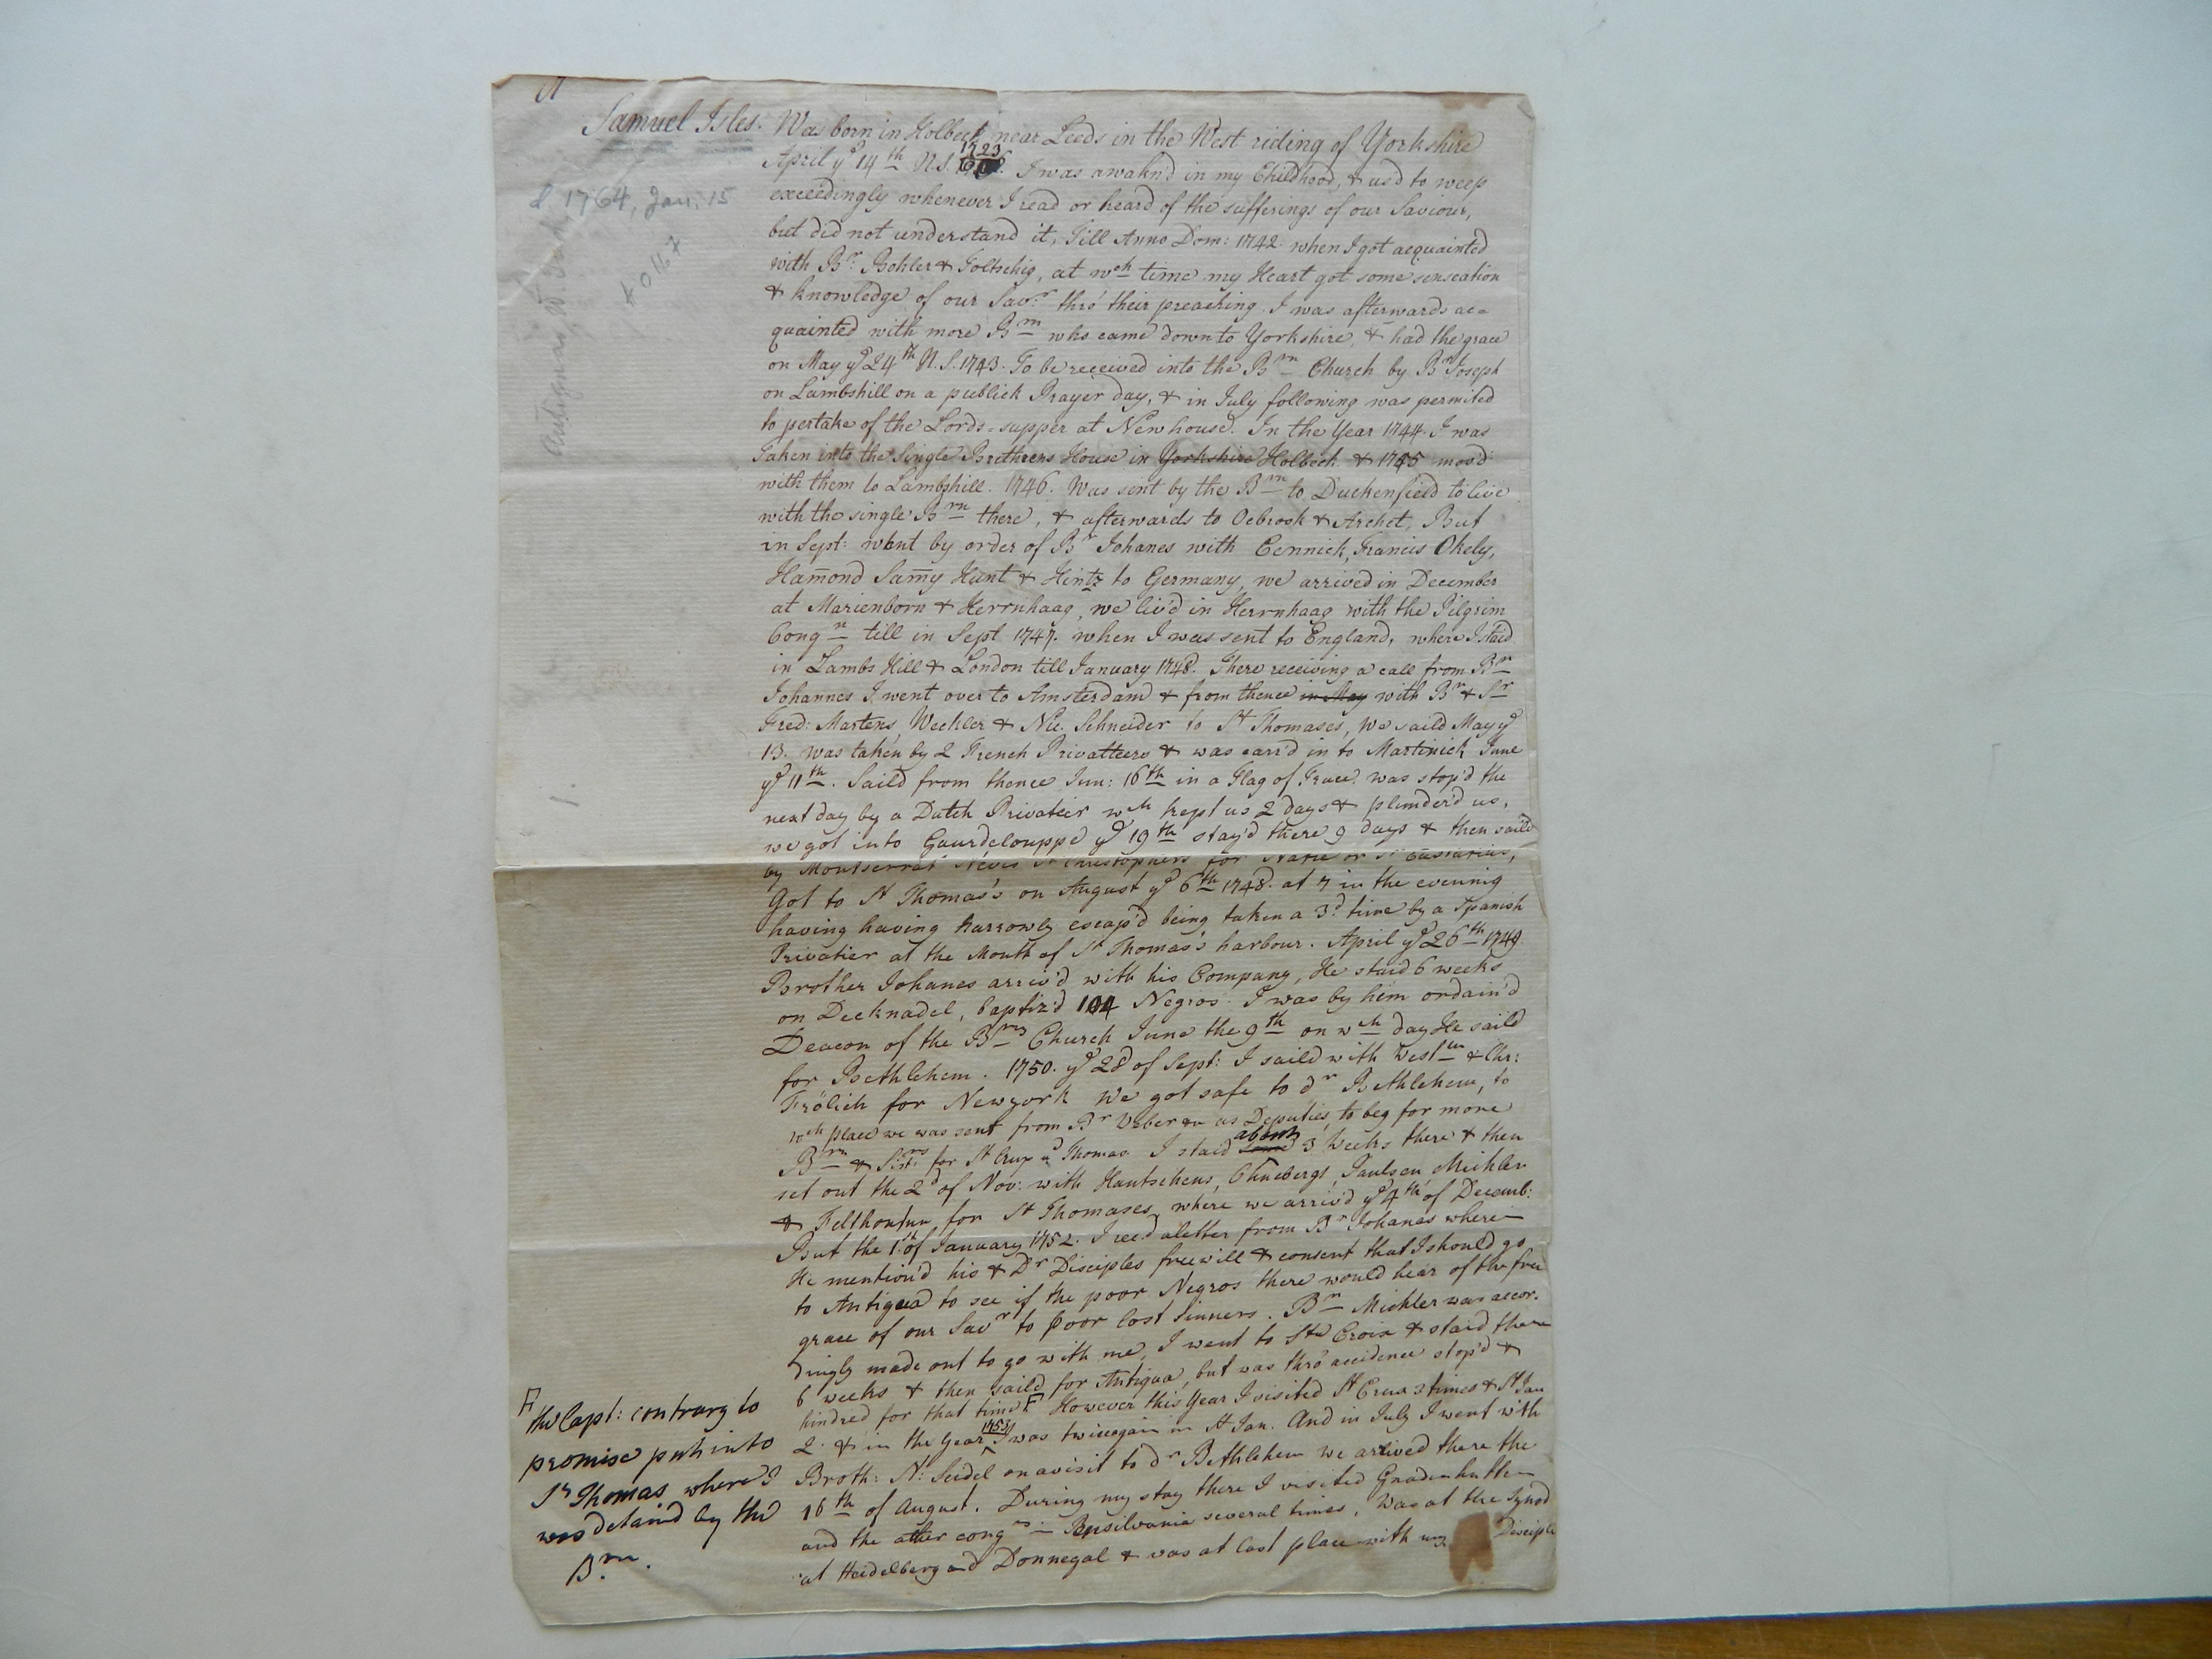 Samuel Isles. Was born in Holbeck near Leeds in the West riding of Yorkshire
April ye 14th N.S. 1723 I was awaknd in my Childhood, & usd to weep
d 1764, Jan. 15
exceedingly whenever I read or heard of the sufferings of our Saviour,
but did not understand it, Till Anno Dom: 1742 when I got acquainted
with Br. Bohler & Toltschig, at wch time my Heart got some senseation
& knowledge of our Savr thro' their preaching. I was afterwards ac=
quainted with more Brn who came down to Yorkshire, & had the grace
on May ye 24th N.S. 1743. To be received into the Brn Church by Br Joseph
on Lambshill on a publick Prayer day, & in July following was permited
to pertake of the Lords-supper at Newhouse. In the Year 1744. I was
Taken into the Single Brethrens House in Yorkshire Holbeck & 1745 mov'd
with them to Lambshill. 1746. Was sent by the Brn to Duckenfield to live
with the single Brn there, & afterwards to Ocbrook & Archet, But
in Sept: went by order of Br Johanes with Cennick, Francis Okely,
Ham̄ond Sam̄y Hunt & Hintz to Germany, we arrived in December
at Marienborn & Herrnhaag, we liv'd in Herrnhaag with the Pilgrim
Congn till in Sept 1747. when I was sent to England, where I staid
in Lambs Hill & London till January 1748. There receiving a call from Br
Johannes I went over to Amsterdam & from thence in May with Br & Sr
Fred: Martens, Weckler & Nic. Schneider to St Thomases, We saild May ye
13. was taken by 2 French Privatteers & was carr'd in to Martinick June
ye 11th. Saild from thence Jun: 16th in a Flag of Truce. was stop'd the
next day by a Dutch Privateir wch kept us 2 days & plunder'd us,
we got into Gaurdelouppe ye 19th stay'd there 9 days & then saild
by Montserrat Neves St Christophers for or St Eustatius,
Got to St Thomas's on August ye 6th 1748. at 7 in the evening
having having narrowly escap'd being taken a 3d time by a Spanish
Privatier at the Mouth of St Thomas's harbour. April ye 26th 1749
Brother Johanes arriv'd with his Company, He staid 6 weeks
on Decknadel, baptiz'd 104 Negros. I was by him ordain'd
Deacon of the Brns Church June the 9th on wch day He saild
for Bethlehem. 1750. ye 28 of Sept: I saild with Westmn & Chr:
Frölich for Newyork We got safe to dr Bethlehem, to
wch place we was sent from Br Weber as Deputies, to beg for more
Brn & Sistrs for St Crux & Thomas. I staid about 3 Weeks there & then
set out the 2d of Nov: with Hantschens, Ohnebergs, Paulsen Michler
& Felthousen for St Thomases, where we arriv'd ye 4th of Decemb:
But the 1st of January 1752. I recd a letter from Br Johanes wherein
He mention'd his & Dr Disciples freewill & consent that I should go
to Antigua to see if the poor Negros there would hear of the free
grace of our Savr to poor lost sinners. Br Michler was accor-
dingly made out to go with me, I went to Sta Croix & staid there
6 weeks & then saild for Antigua, but was thro' accidence stop'd &
hindred for that time F However this Year I visited St Crux 3 times & St Jan
2. & in the Year 1753 I was twice again in St Jan. And in July I went with
Broth: N: Seidel on a visit to dr Bethlehem we arrived there the
16th of August. During my stay there I visited Gnadenhutten
and the other congns in Pensilvania several times. Was at the Synod
at Heidelberg and Donnegal & was at last place with my Disciple
F
the Capt: contrary to
promise put into
St Thomas where I
was detaind by the
Brn.
1.